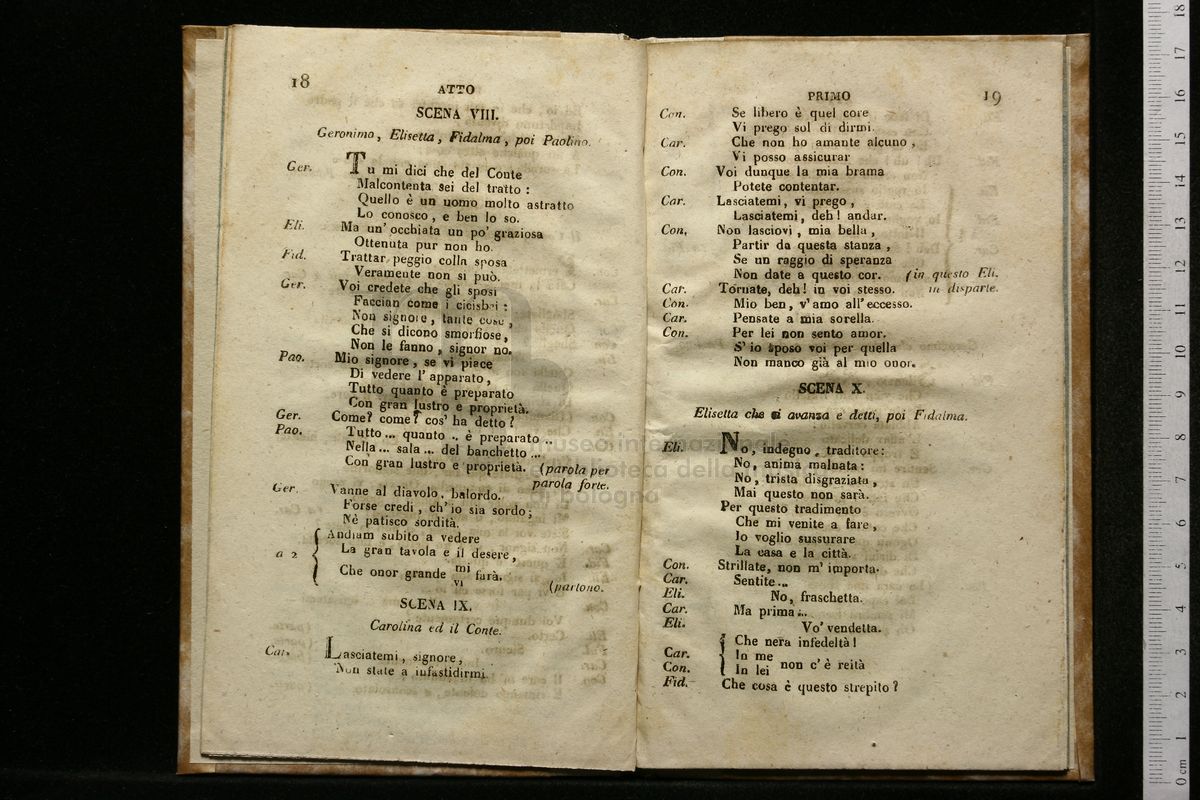 18
ATTO
SCENA VIII.
Geronimo, Elisetta, Fidalma, poi Paolino.
Ger. Tu mi dici che del Conte
Malcontenta sei del tratto :
Quello è un uomo molto astratto
Lo conosco, e ben lo so.
Eli. Ma un' occhiata un po' graziosa
Ottenuta pur non ho.
Fid. Trattar peggio colla sposa
Veramente non si può.
Ger. Voi credete che gli sposi
Faccian come i cicisbei :
Non signore, tante cose,
Che si dicono smorfiose,
Non le fanno, signor no.
Pao. Mio signore, se vi piace
Di vedere l' apparato,
Tutto quanto è preparato
Con gran lustro e proprietà.
Ger. Come? come? cos' ha detto?
Pao. Tutto... quanto .. è preparato ..
Nella... sala ... del banchetto ...
Con gran lustro e proprietà. (parola per
parola forte.
Ger. Vanne al diavolo, balordo.
Forse credi, ch' io sia sordo;
Nè patisco sordità.
Andiam subito a vedere
a 2 La gran tavola e il desere,
Che onor grande mi vi farà.
(partono.
SCENA IX.
Carolina ed il Conte.
Car. Lasciatemi, signore,
Non state a infastidirmi.
PRIMO
19
Con. Se libero è quel core
Vi prego sol di dirmi.
Car. Che non ho amante alcuno,
Vi posso assicurar
Con. Voi dunque la mia brama
Potete contentar.
Car. Lasciatemi, vi prego,
Lasciatemi, deh! andar.
Con. Non lasciovi, mia bella,
Partir da questa stanza,
Se un raggio di speranza
Non date a questo cor. (in questo Eli.
Car. Tornate, deh! in voi stesso. in disparte.
Con. Mio ben, v' amo all' eccesso.
Car. Pensate a mia sorella.
Con. Per lei non sento amor.
S' io sposo voi per quella
Non manco già al mio onor.
SCENA X.
Elisetta che si avanza e detti, poi Fidalma.
Eli. No, indegno, traditore:
No, anima malnata:
No, trista disgraziata,
Mai questo non sarà.
Per questo tradimento
Che mi venite a fare,
Io voglio sussurare
La casa e la città.
Con. Strillate, non m' importa.
Car. Sentite...
Eli. No, fraschetta.
Car. Ma prima...
Eli. Vo' vendetta.
Che nera infedeltà!
Car. In me
Con. In lei non c' è reità
Fid. Che cosa è questo strepito?
museo internazionale
e biblioteca della musica
di bologna